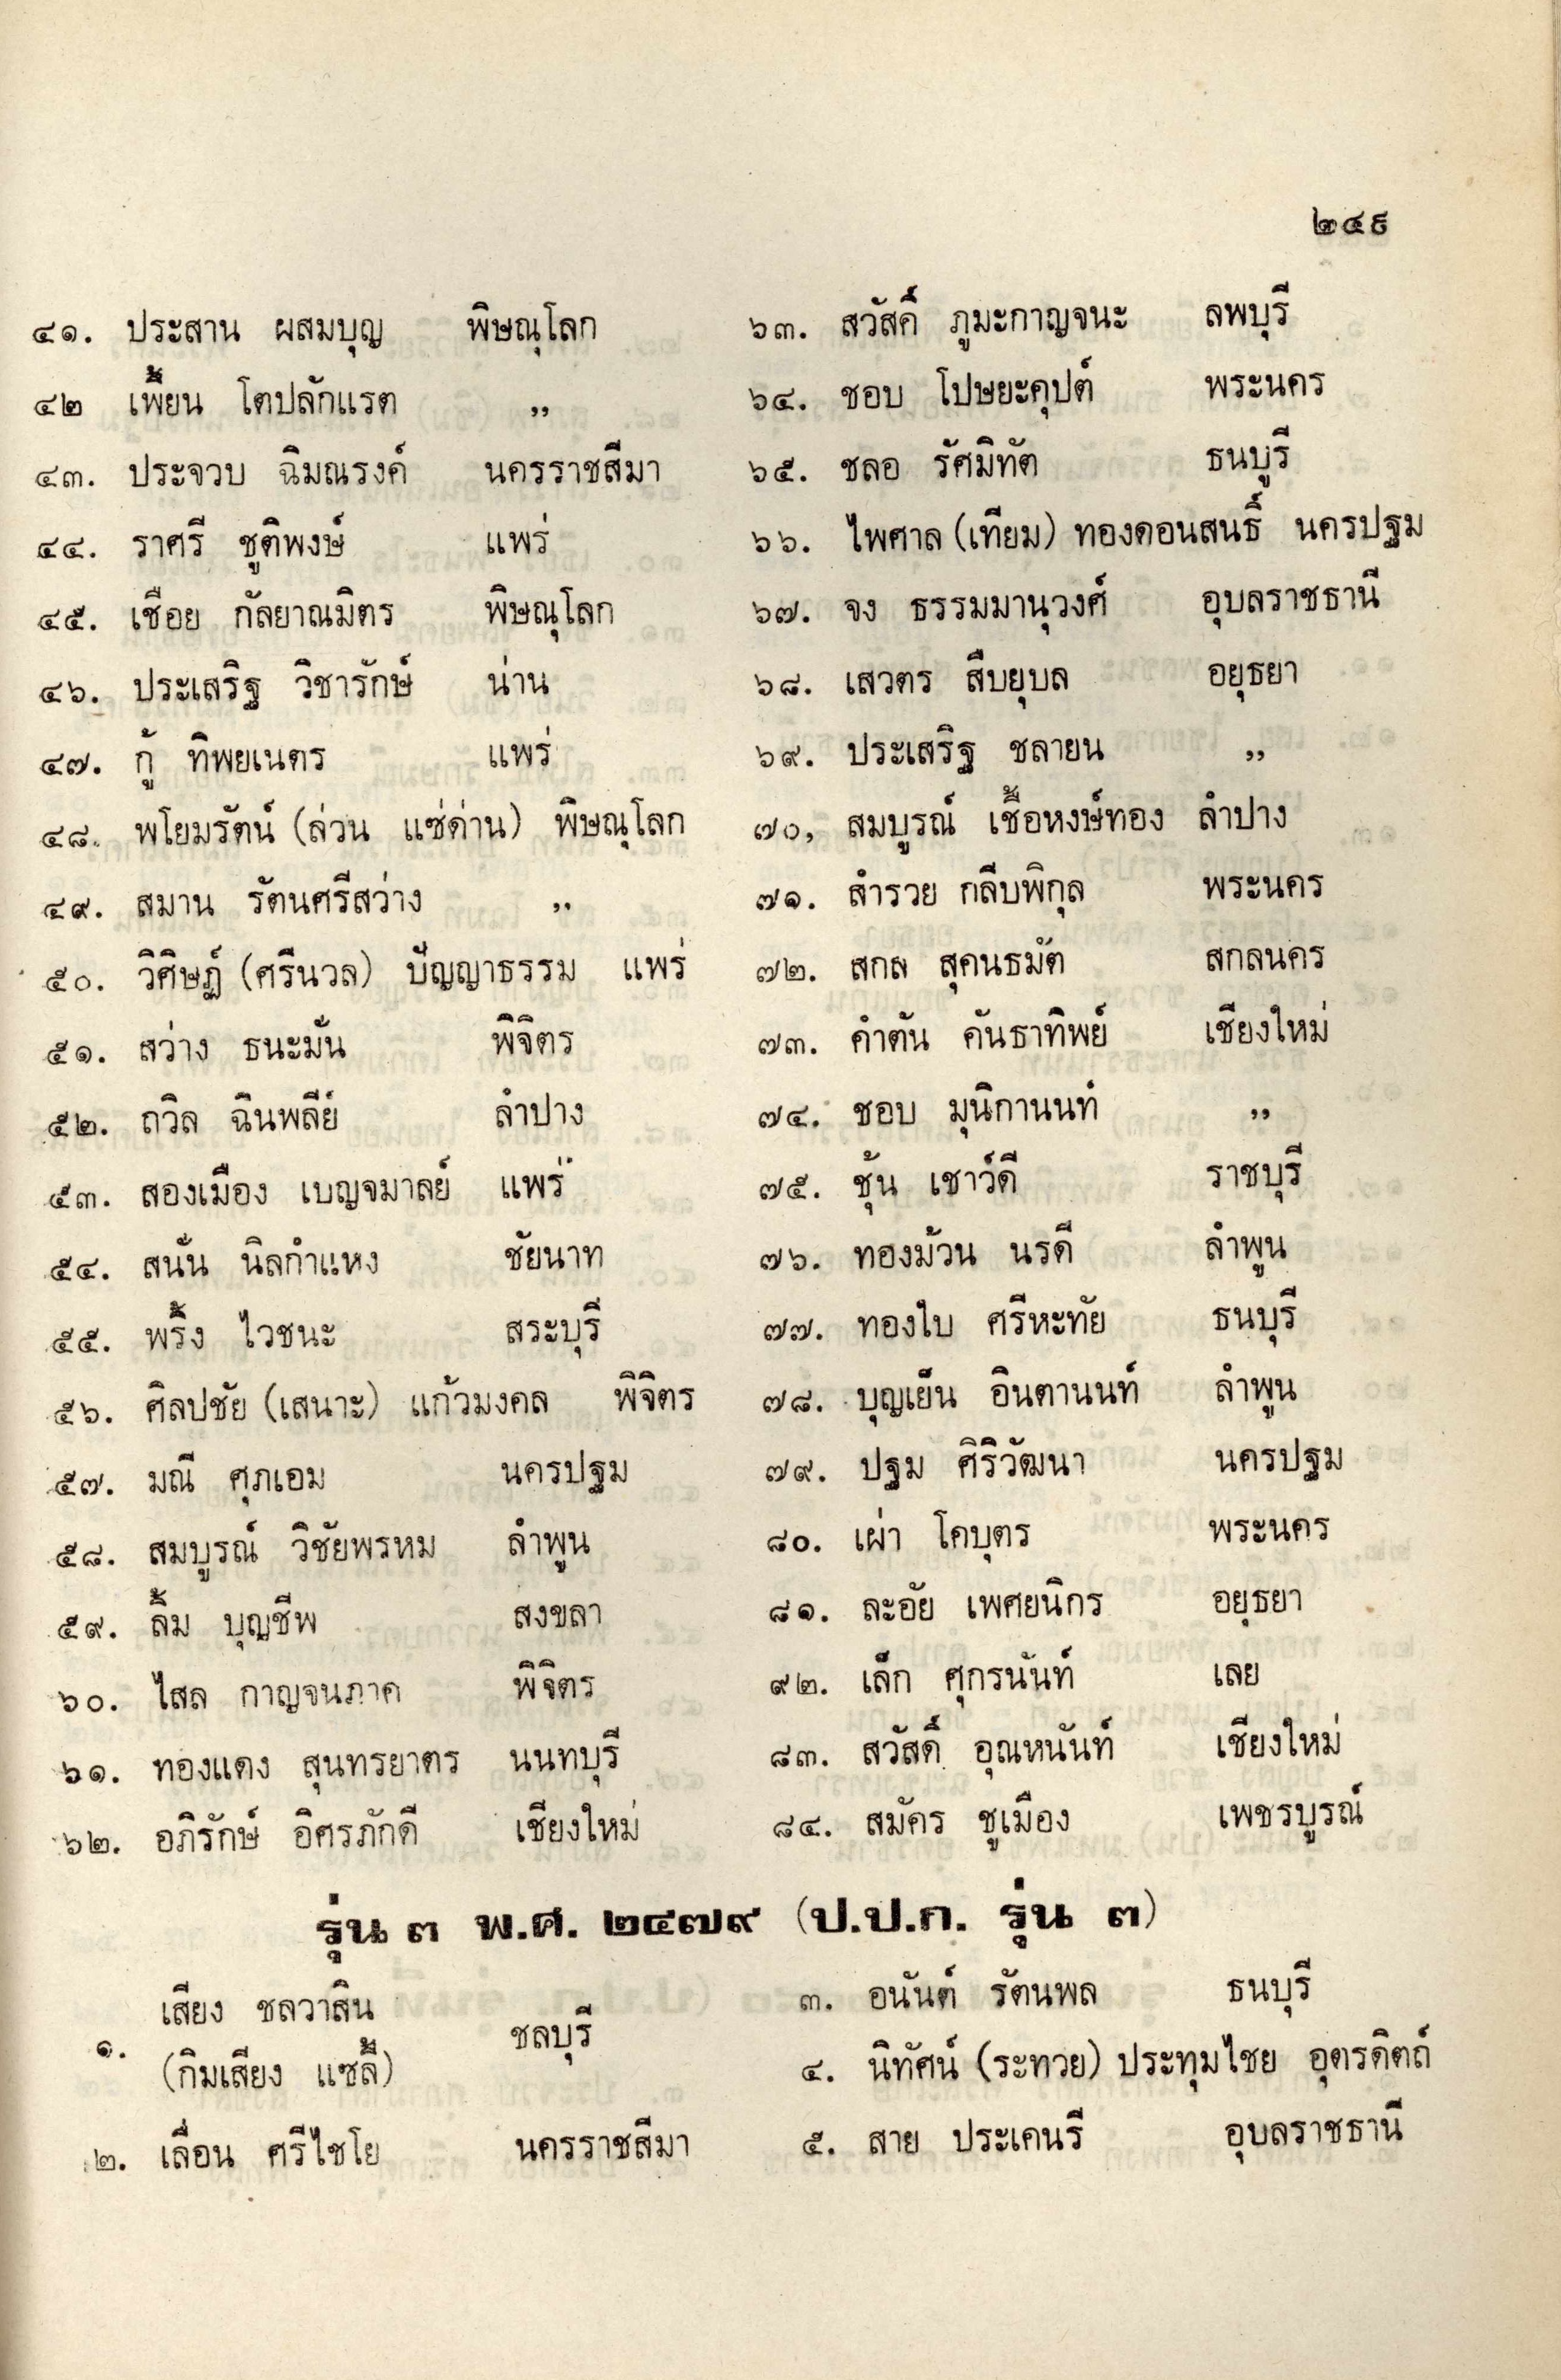 ๒๔๕
๔๑. ประสาน ผสมบุญ พิษณุโลก
๔๒ เพี้ยน โตปลักแรต ,,
๔๓. ประจวบ ฉิมณรงค์ นครราชสีมา
๔๔. ราศรี ชูติพงษ์ แพร่
๔๕. เชือย กัลยาณมิตร พิษณุโลก
๔๖. ประเสริฐ วิชารักษ์ น่าน
๔๗. กู้ ทิพยเนตร แพร่
๔๘. พโยมรัตน์ (ล่วน แซ่ด่าน) พิษณุโลก
๔๙. สมาน รัตนศรีสว่าง ,,
๕๐. วิศิษฏ์ (ศรีนวล) ปัญญาธรรม แพร่
๕๑. สว่าง ธนะมั่น พิจิตร
๕๒. ถวิล ฉินพลีย์ ลำปาง
๕๓. สองเมือง เบญจมาลย์ แพร่
๕๔. สนั่น นิลกำแหง ชัยนาท
๕๕. พริ้ง ไวชนะ สระบุรี
๕๖. ศิลปชัย (เสนาะ) แก้วมงคล พิจิตร
๕๗. มณี ศุภเอม นครปฐม
๕๘. สมบูรณ์ วิชัยพรหม ลำพูน
๕๙. ลิ้ม บุญชีพ สงขลา
๖๐. ไสล กาญจนภาค พิจิตร
๖๑. ทองแดง สุนทรยาตร นนทบุรี
๖๒. อภิรักษ์ อิศรภักดี เชียงใหม่
๖๓. สวัสดิ์ ภูมะกาญจนะ ลพบุรี
๖๔. ชอบ โปษยะคุปต์ พระนคร
๖๕. ชลอ รัศมิทัต ธนบูรี
๖๖. ไพศาล (เทียม) ทองดอนสนธิ์ นครปฐม
๖๗. จง ธรรมมานุวงศ์ อุบลราชธานี
๖๘. เสวตร สืบยุบล อยุธยา
๖๙. ประเสริฐ ชลายน ,,
๗๐, สมบูรณ์ เชื้อหงษ์ทอง ลำปาง
๗๑. สำรวย กลีบพิกุล พระนคร
๗๒. สกล สุคนธมัต สกลนคร
๗๓. คำตัน คันธาทิพย์ เชียงใหม่
๗๔. ชอบ มุนิกานนท์ ,,
๗๕. ชุ้น เชาว์ดี ราชบุรี
๗๖. ทองม้วน นรดี ลำพูน
๗๗. ทองใบ ศรีหะทัย ธนบุรี
๗๘. บุญเย็น อินตานนท์ ลำพูน
๗๙. ปฐม ศิริวัฒนา นครปฐม
๘๐. เผ่า โคบุตร พระนคร
๘๑. ละอัย เพศยนิกร อยุธยา
๙๒. เล็ก ศุกรนันท์ เลย
๘๓. สวัสดิ์ อุณหนันท์ เชียงใหม่
๘๔. สมัคร ชูเมือง เพชรบูรณ์
รุ่น ๓ พ.ศ. ๒๔๗๙ (ป.ป.ก. รุ่น ๓)
๑. เสียง ชลวาสิน ชลบุรี
(กิมเสียง แซ่ลี้)
๒. เลื่อน ศรีไชโย นครราชสีมา
๓. อนันต์ รัตนพล ธนบุรี
๔. นิทัศน์ (ระทวย) ประทุมไชย อุตรดิตถ์
๕. สาย ประเคนรี อุบลราชธานี